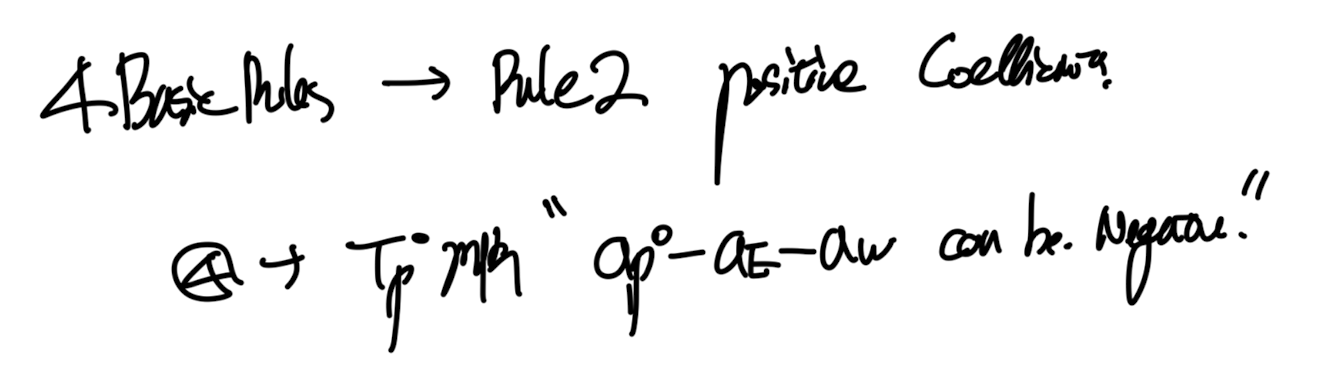 4 Basic Rules → Rule 2 positive Coefficient?
Ⓐ → Tp° " ap° - aE - aw can be. Negative."